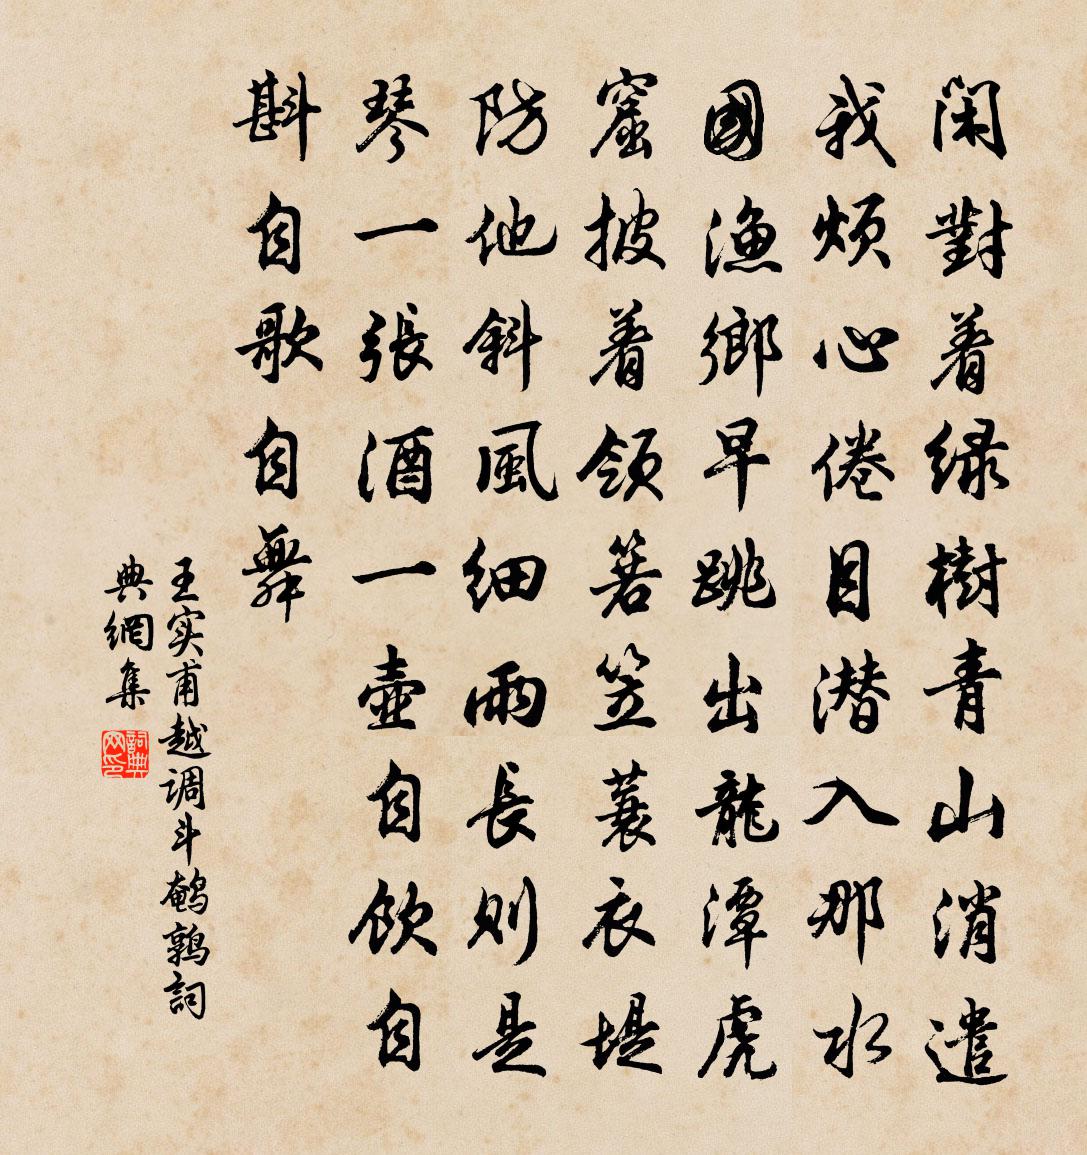 閑對着緑樹青山消遣
我煩心倦目潜入那水
國漁鄉早跳出龍潭虎
窟披着領箬笠蓑衣堤
防他斜風細雨長則是
琴一張酒一壺自飲自
斟自歌自舞
王实甫越调斗鹌鹑詞
典網集
詞典网印